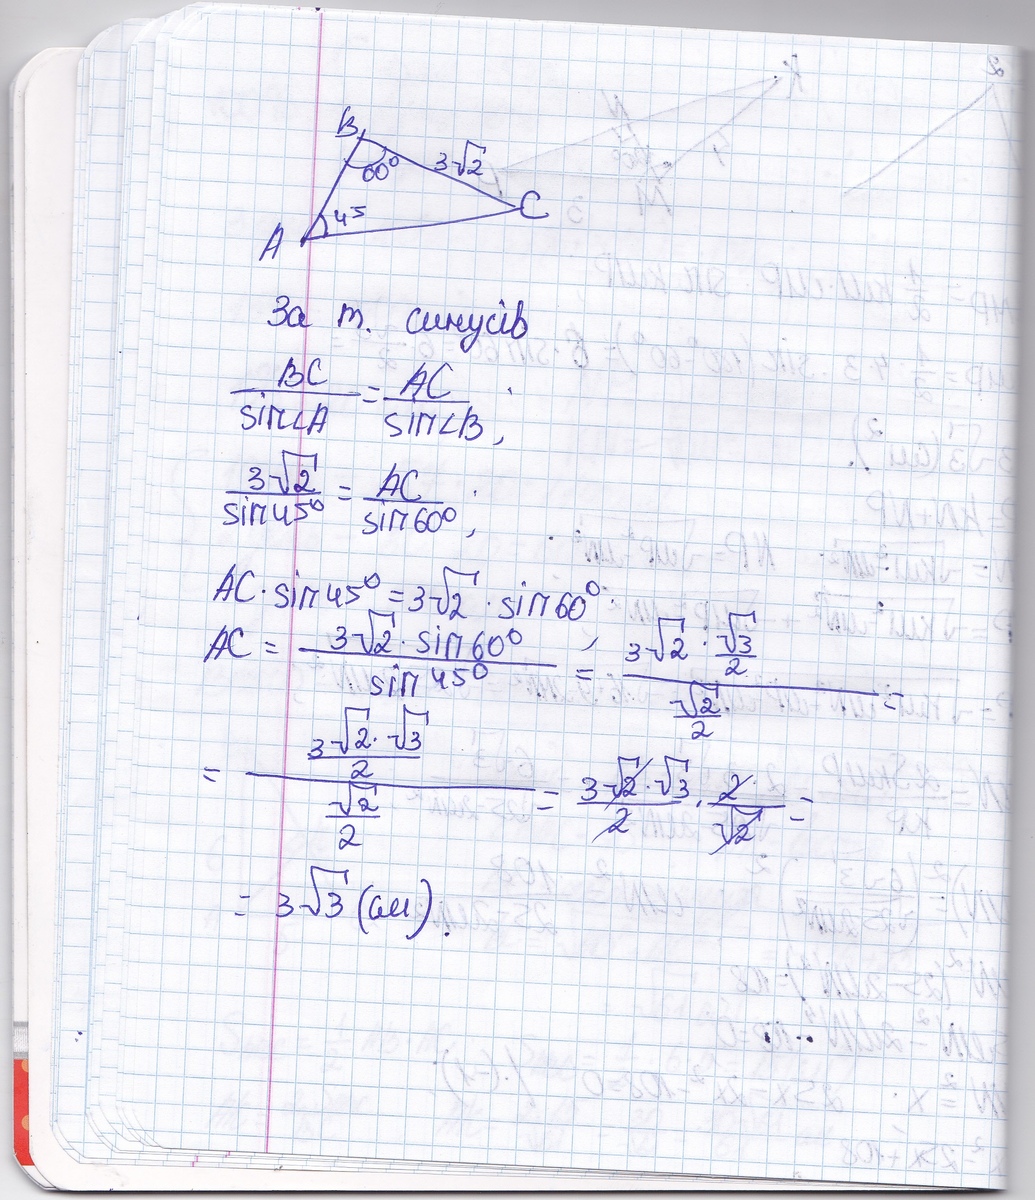 B
60°
3√2
45
A
C
За т. синусів
BC/sin∠A = AC/sin∠B ;
3√2/sin45° = AC/sin60° ;
AC·sin45° = 3√2 · sin60° ;
AC = (3√2 · sin60°)/(sin45°) = (3√2 · √3/2)/(√2/2) =
= ((3√2 · √3)/2)/(√2/2) = (3√2 · √3)/2 · 2/√2 =
= 3√3 (см).